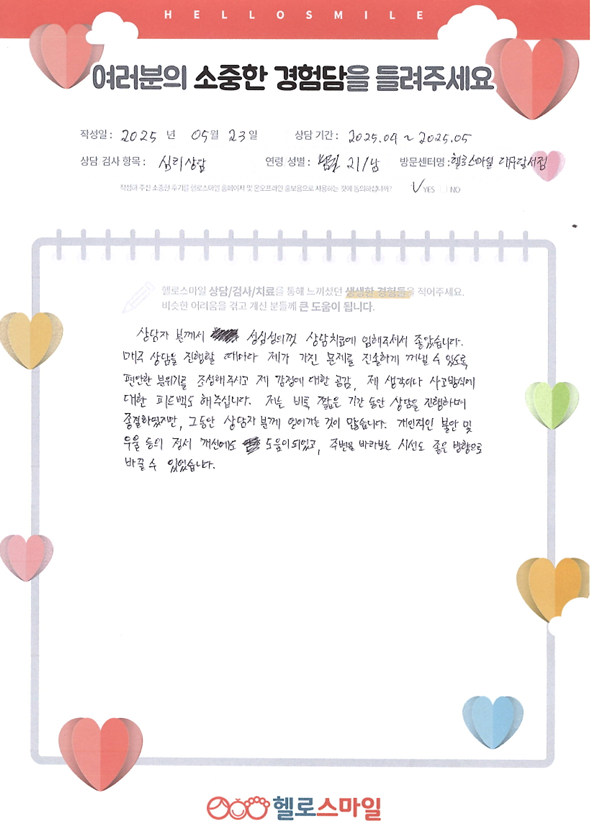 HELLOSMILE
여러분의 소중한 경험담을 들려주세요
작성일 : 2025 년 05월 23일 상담 기간 : 2025.04 ~ 2025.05
상담 검사 항목 : 심리상담 연령 성별 : 21/남 방문센터명 : 헬로스마일 대구달서점
작성해 주신 소중한 후기를 헬로스마일 홈페이지 및 온오프라인 홍보용으로 사용하는 것에 동의하십니까? ✓ YES □ NO
헬로스마일 상담/검사/치료를 통해 느끼셨던 생생한 경험들을 적어주세요.
비슷한 어려움을 겪고 계신 분들께 큰 도움이 됩니다.
상담자 분께서 성심성의껏 상담치료에 임해주셔서 좋았습니다.
매주 상담을 진행할 때마다 제가 가진 문제를 진솔하게 꺼낼 수 있도록
편안한 분위기를 조성해주시고 제 감정에 대한 공감, 제 생각이나 사고방식에
대한 피드백도 해주십니다. 저는 비록 짧은 기간 동안 상담을 진행하며
종결하였지만, 그동안 상담자 분께 얻어가는 것이 많습니다. 개인적인 불안 및
우울 등의 정서 개선에도 도움이 되었고, 주변을 바라보는 시선도 좋은 방향으로
바꿀 수 있었습니다.
헬로스마일